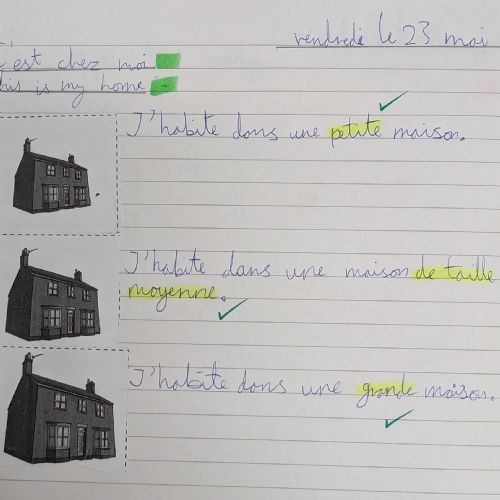 vendredi le 23 mai
est chez moi.
his is my home.
J'habite dans une petite maison.
J'habite dans une maison de taille
moyenne.
J'habite dans une grande maison.